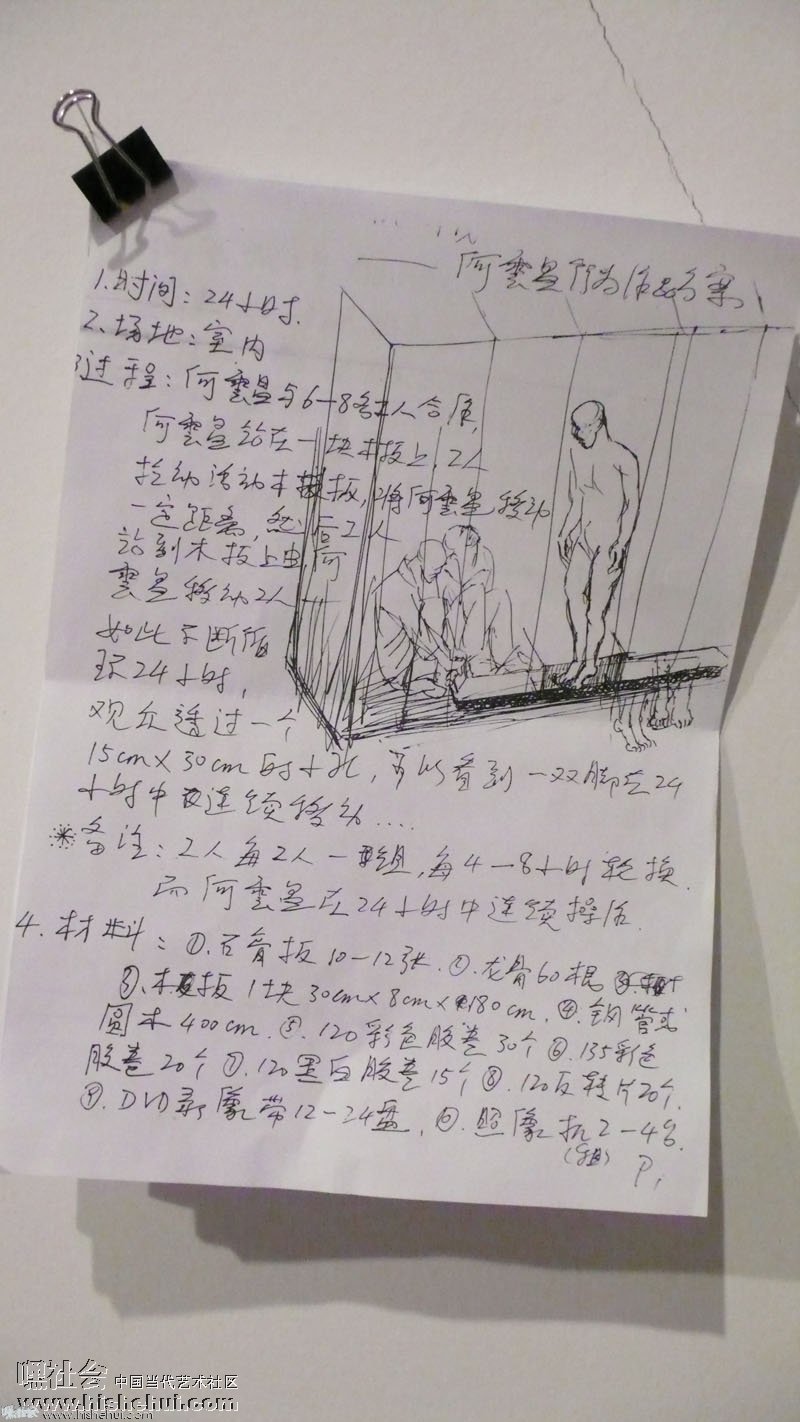 —— 何雲昌行为作品方案
1.时间：24小时.
2.场地：室内
3过程：何雲昌与6—8名工人合作，
何雲昌站在一块木板上，2人
拉动活动木板，将何雲昌移动
一定距离，然后2人
站到木板上由何
雲昌移动2人—
如此不断循
环24小时，
观众透过一个
15cm×30cm的小孔，可以看到一双脚在24
小时中连续移动....
※备注：2人每2人一组，每4—8小时轮换.
而何雲昌在24小时中连续操作.
4.材料：①.石膏板10—12张.①.龙骨60根
③.木板1块30cm×8cm×180cm.④.钢管或
圆木400cm.⑤.120彩色胶卷30个⑥.135彩色
胶卷20个⑦.120黑白胶卷15个⑧.120反转片20个.
⑨.DVD录像带12—24盘.⑩.照像机2—4台.
P1
嘿社会 中国当代艺术社区
www.hishehui.com
www.hishehui.com